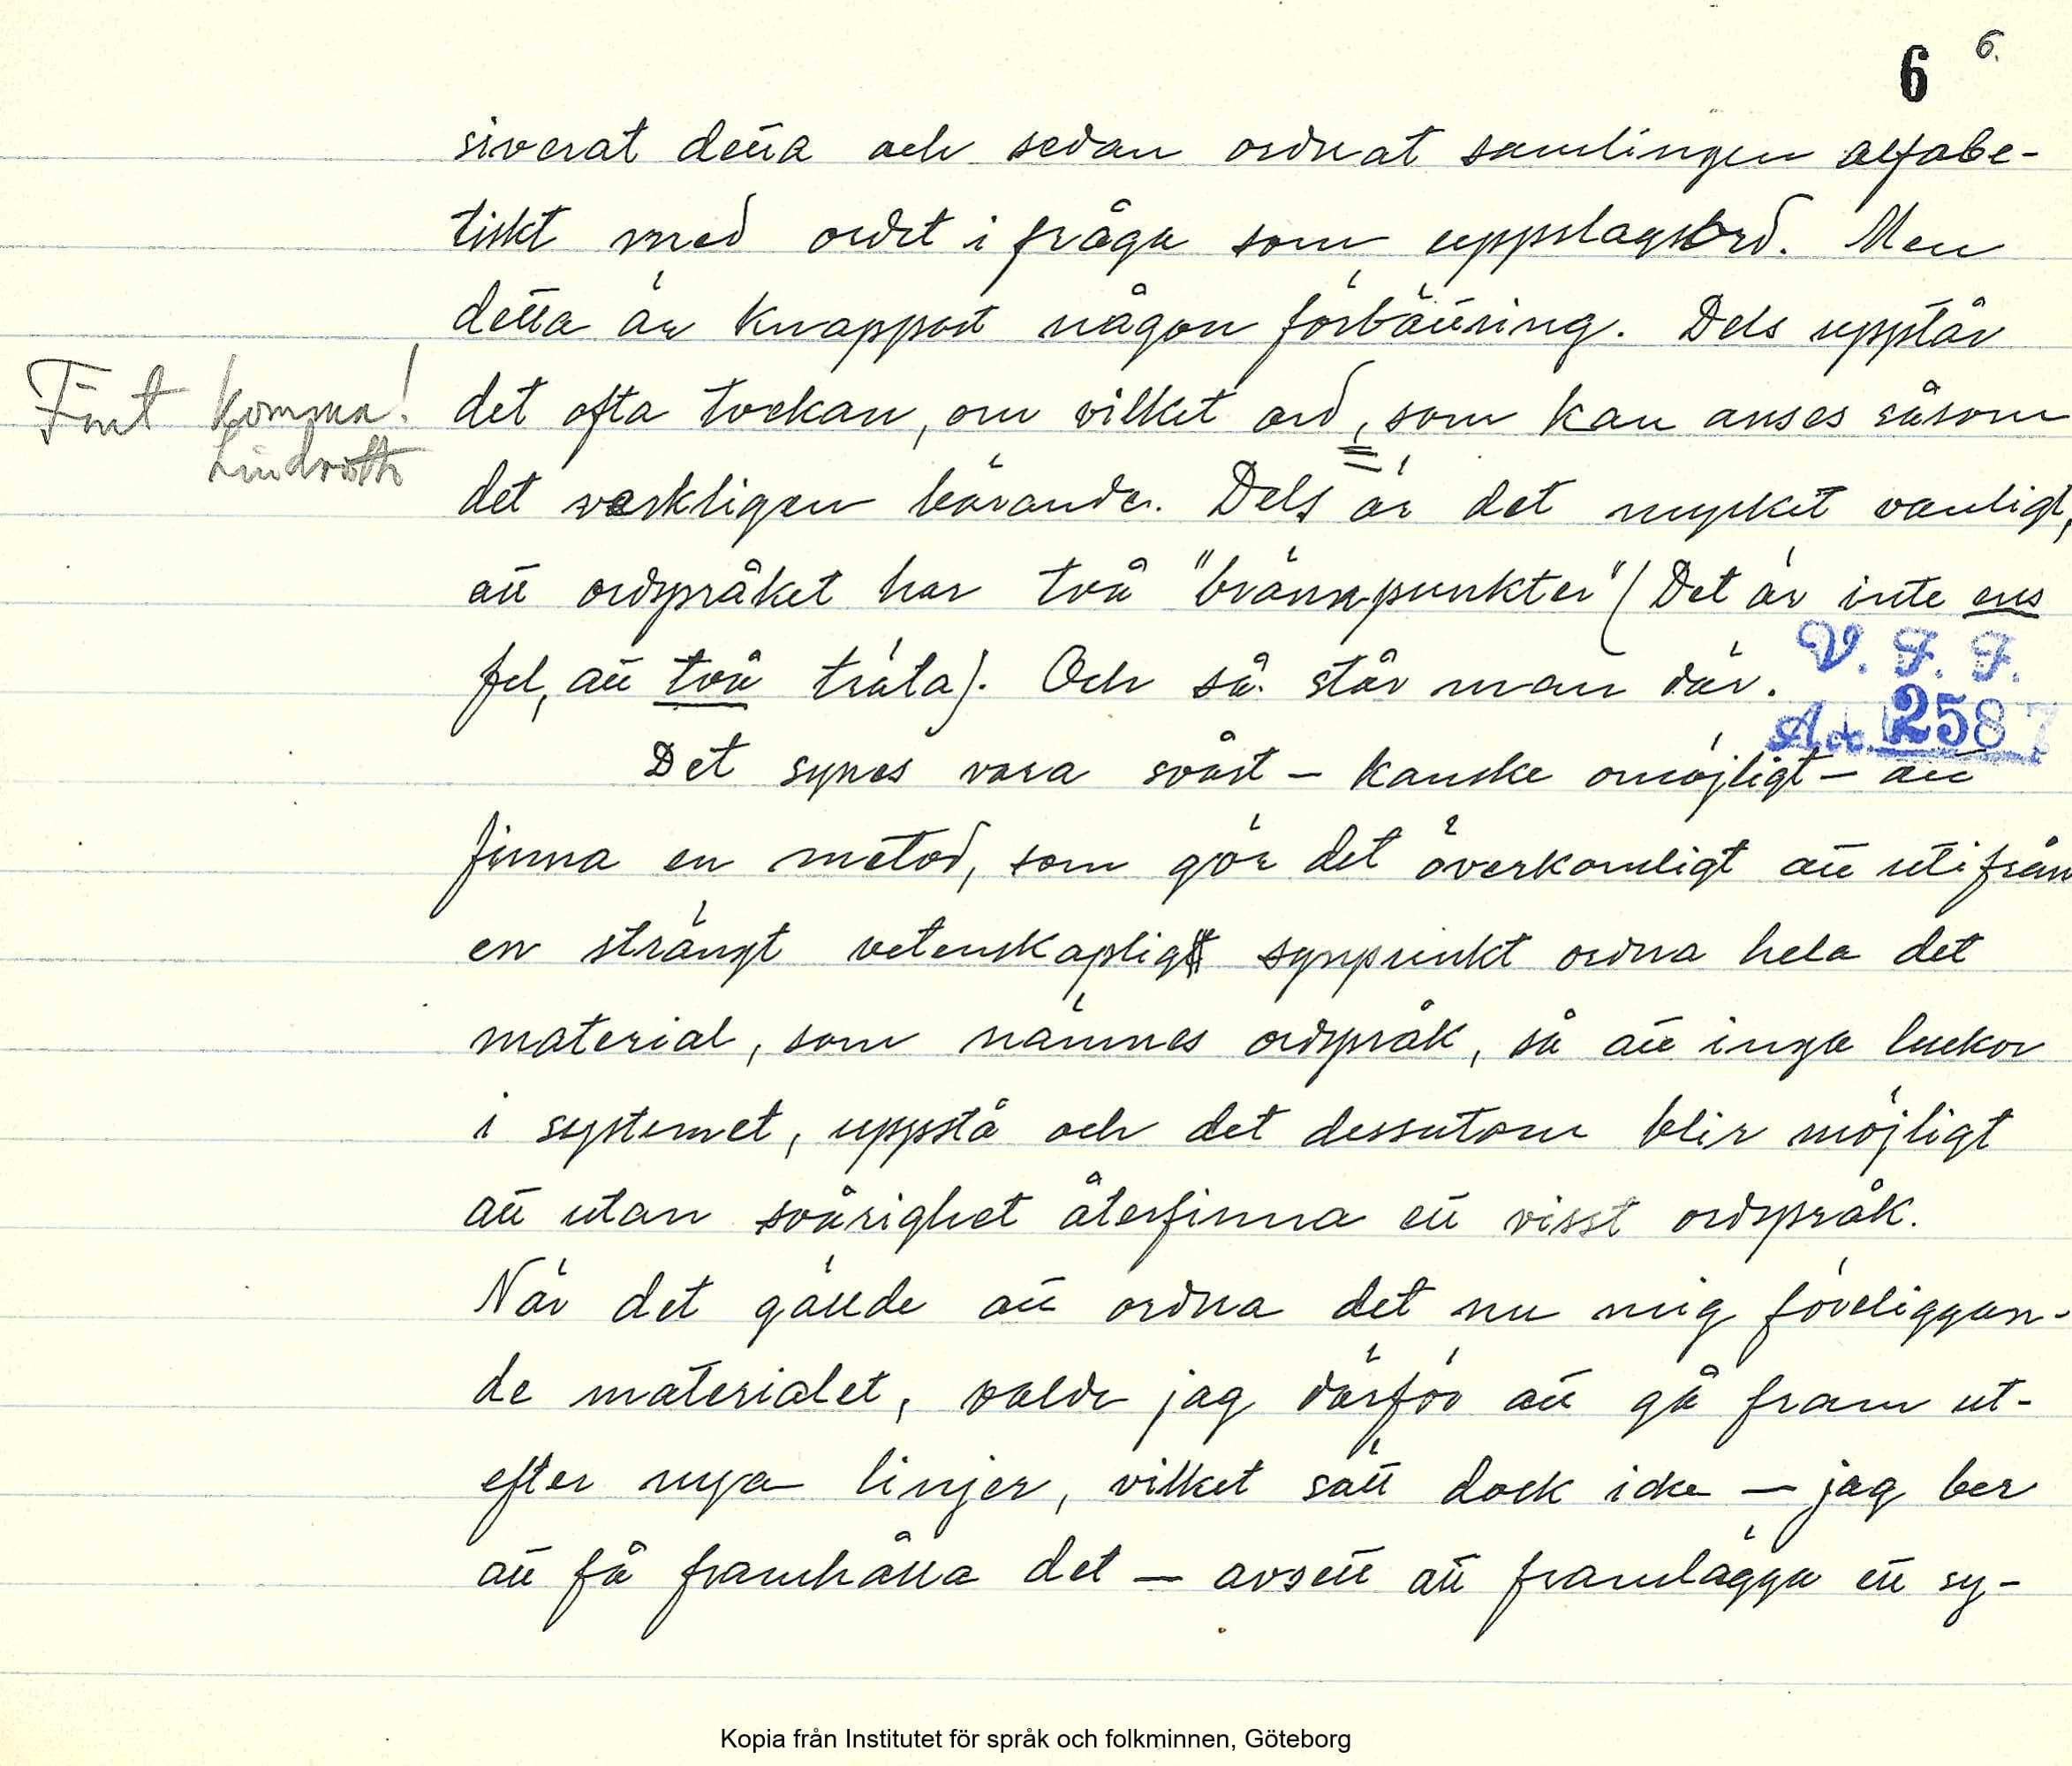 6 6.
siverat detta och sedan ordnat samlingen alfabe-
tiskt med ordet i fråga som uppslagsord. Men
detta är knappast någon förbättring. Dels uppstår
Fint komma! det ofta tvekan, om vilket ord, som kan anses såsom
Lindroth
det verkligen bärande. Dels är det mycket vanligt,
att ordspråket har två "brännpunkter" (Det är inte ens
fel, att två träta). Och så står man där.
V. F. F.
Acc 2587
Det synes vara svårt – kanske omöjligt – att
finna en metod, som gör det överkomligt att utifrån
en strängt vetenskaplig synpunkt ordna hela det
material, som nämnes ordspråk, så att inga luckor
i systemet, uppstå och det dessutom blir möjligt
att utan svårighet återfinna ett visst ordspråk.
När det gällde att ordna det nu mig föreliggan-
de materialet, valde jag därför att gå fram ut-
efter nya linjer, vilket sätt dock icke – jag ber
att få framhålla det – avsett att framlägga ett sy-
Kopia från Institutet för språk och folkminnen, Göteborg